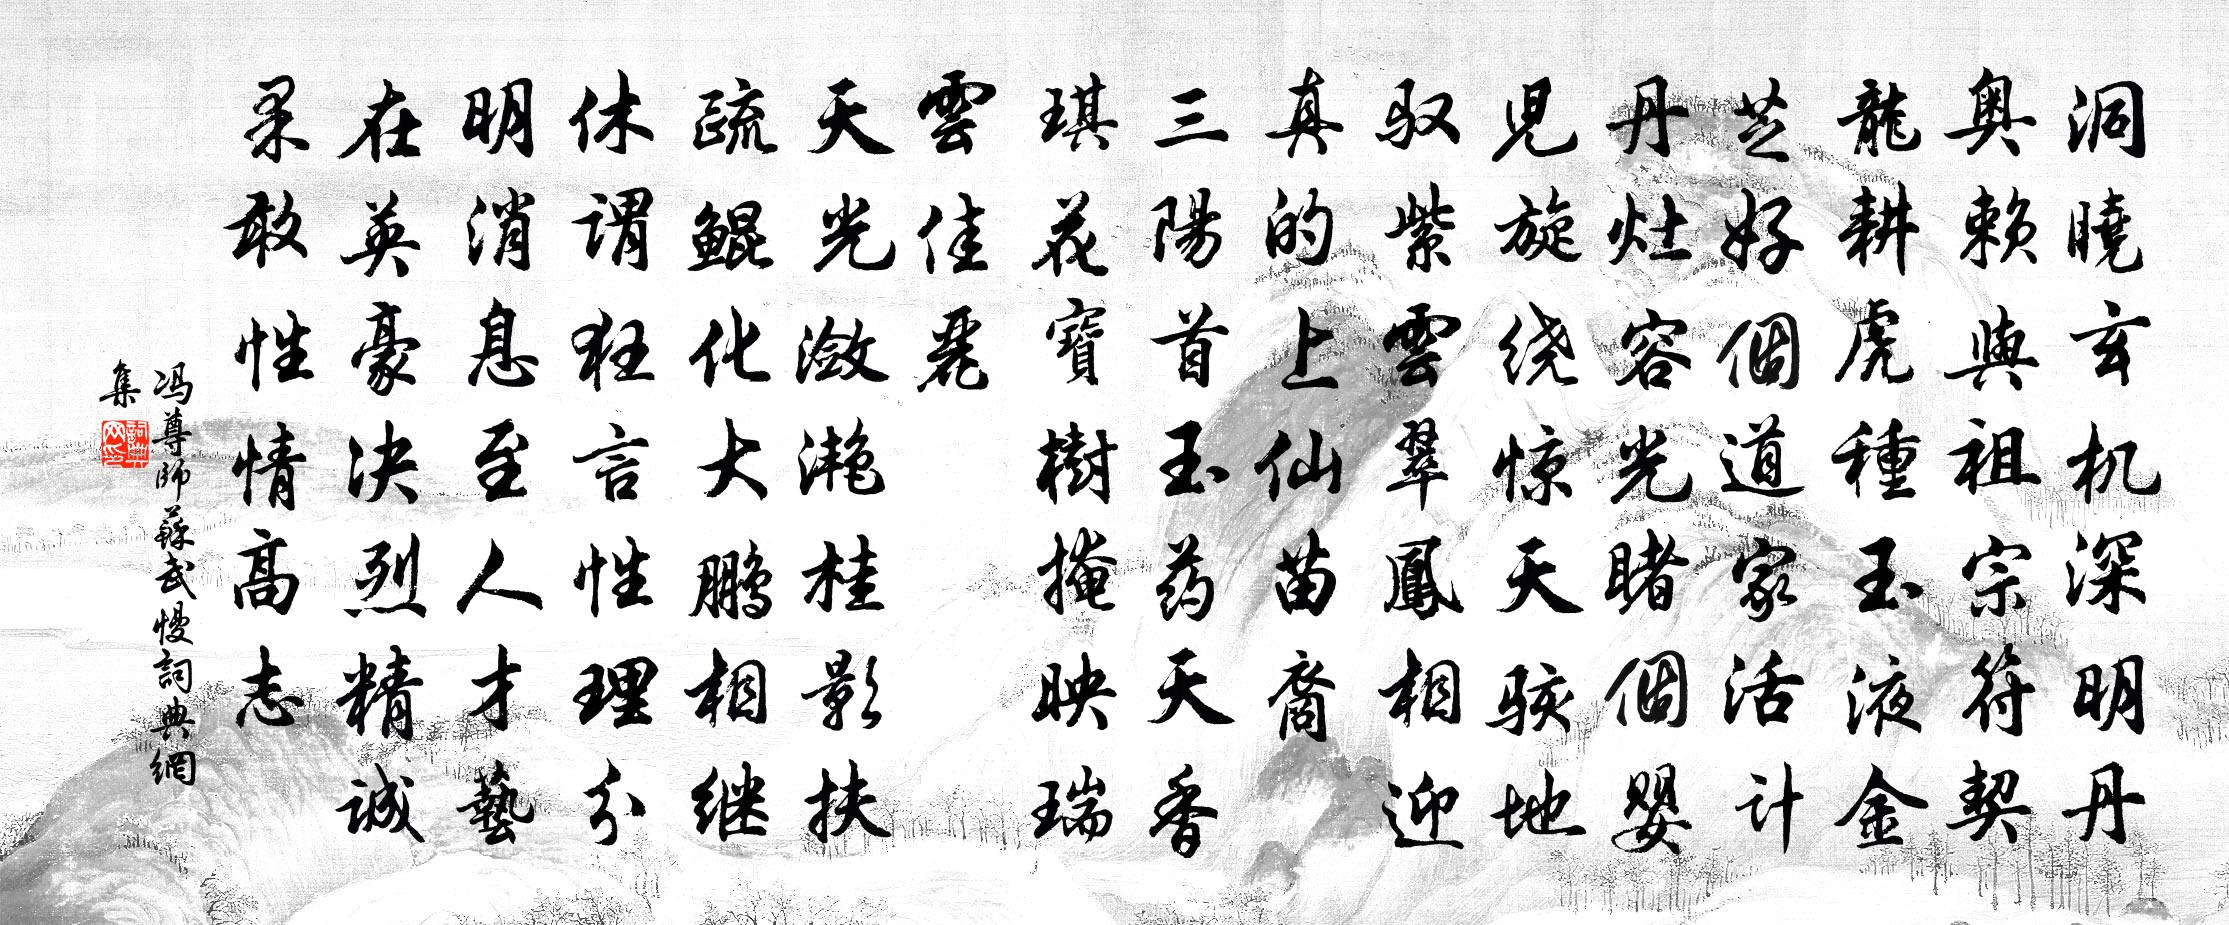 洞曉玄机深明丹
奥赖與祖宗符契
龍耕虎種玉液金
芝好個道家活计
丹灶容光睹個婴
児旋绕惊天骇地
驭紫雲翠鳳相迎
真的上仙苗裔
三陽首玉药天香
琪花寶樹掩映瑞
雲佳麗
天光潋滟桂影扶
疏鲲化大鹏相继
休谓狂言性理分
明消息至人才藝
在英豪决烈精诚
果敢性情高志
冯尊師蘇武慢詞典網
集
詞典网印